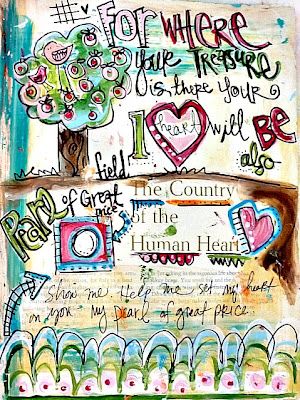 FOR WHERE
your TREASURE
is, there your
heart will BE
also
field
Pearl of Great
price
The Country
of the
Human Heart
Show me. Help me set my heart
on you my pearl of great price.